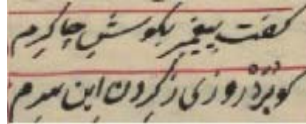 گفت پیغمبر بگوش چاکرم
کو برد روزی ز گردن این سرم